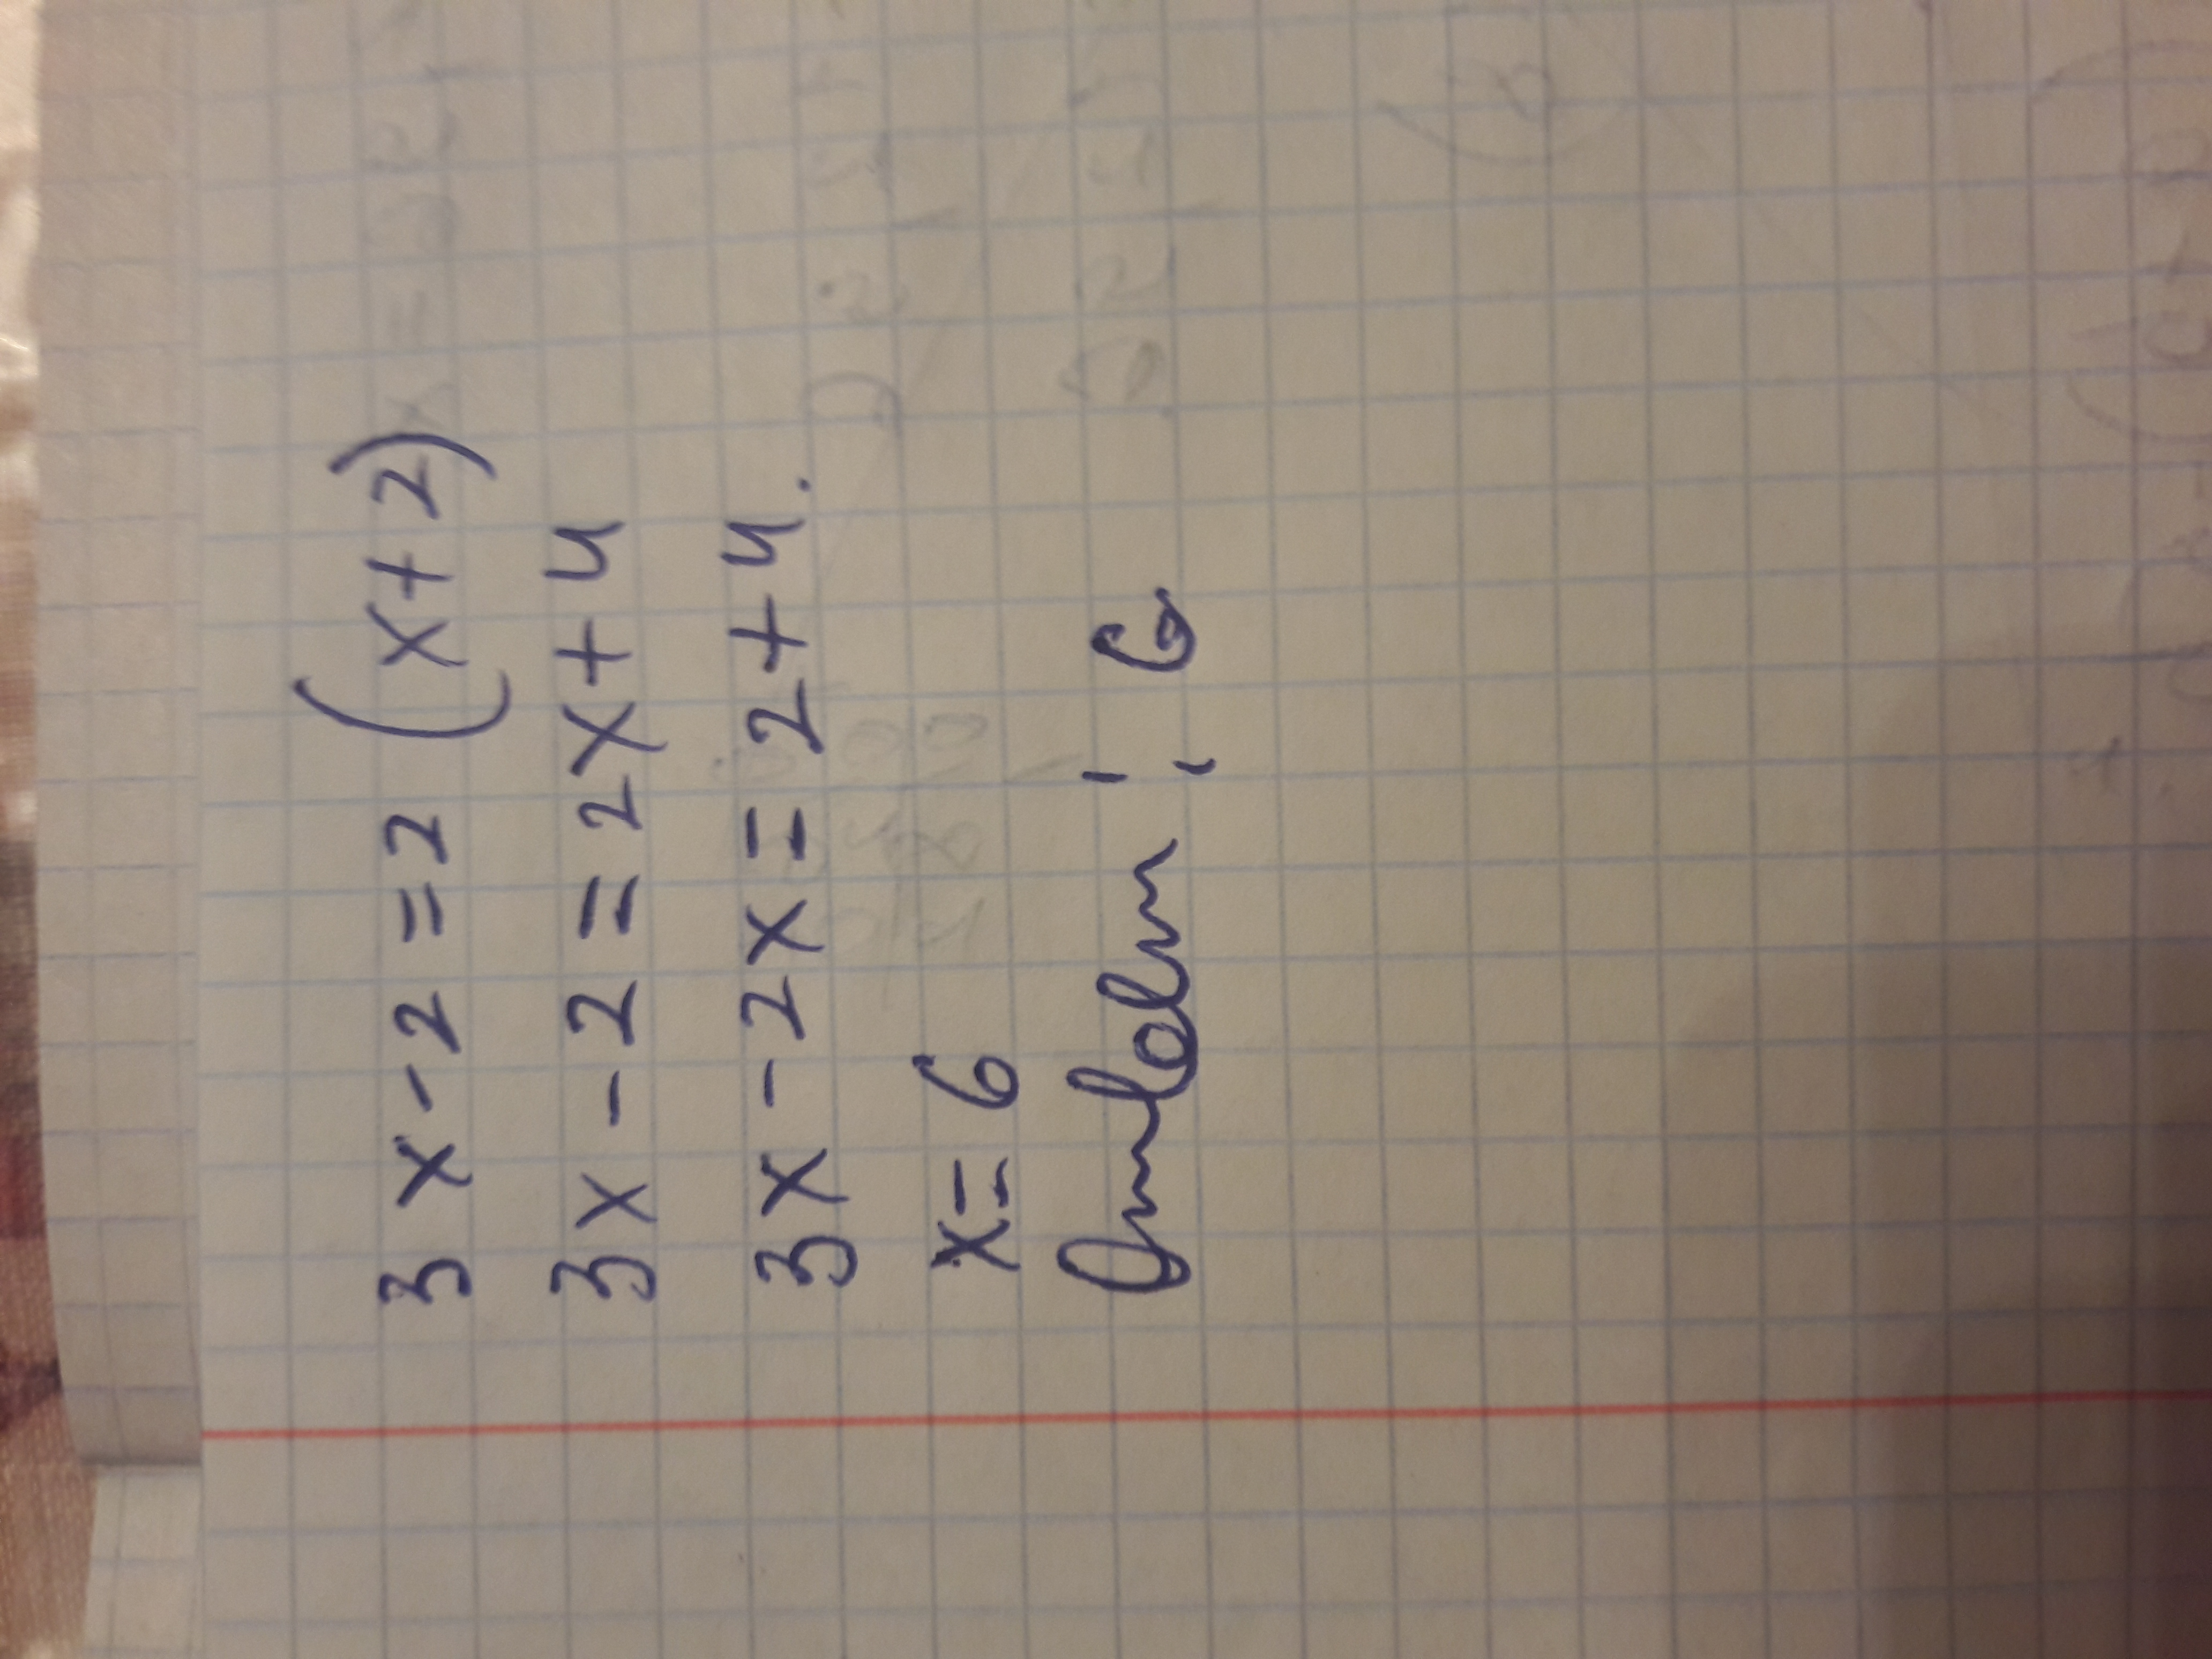 3x - 2 = 2 (x + 2)
3x - 2 = 2x + 4
3x - 2x = 2 + 4.
x = 6
Ответ: 6